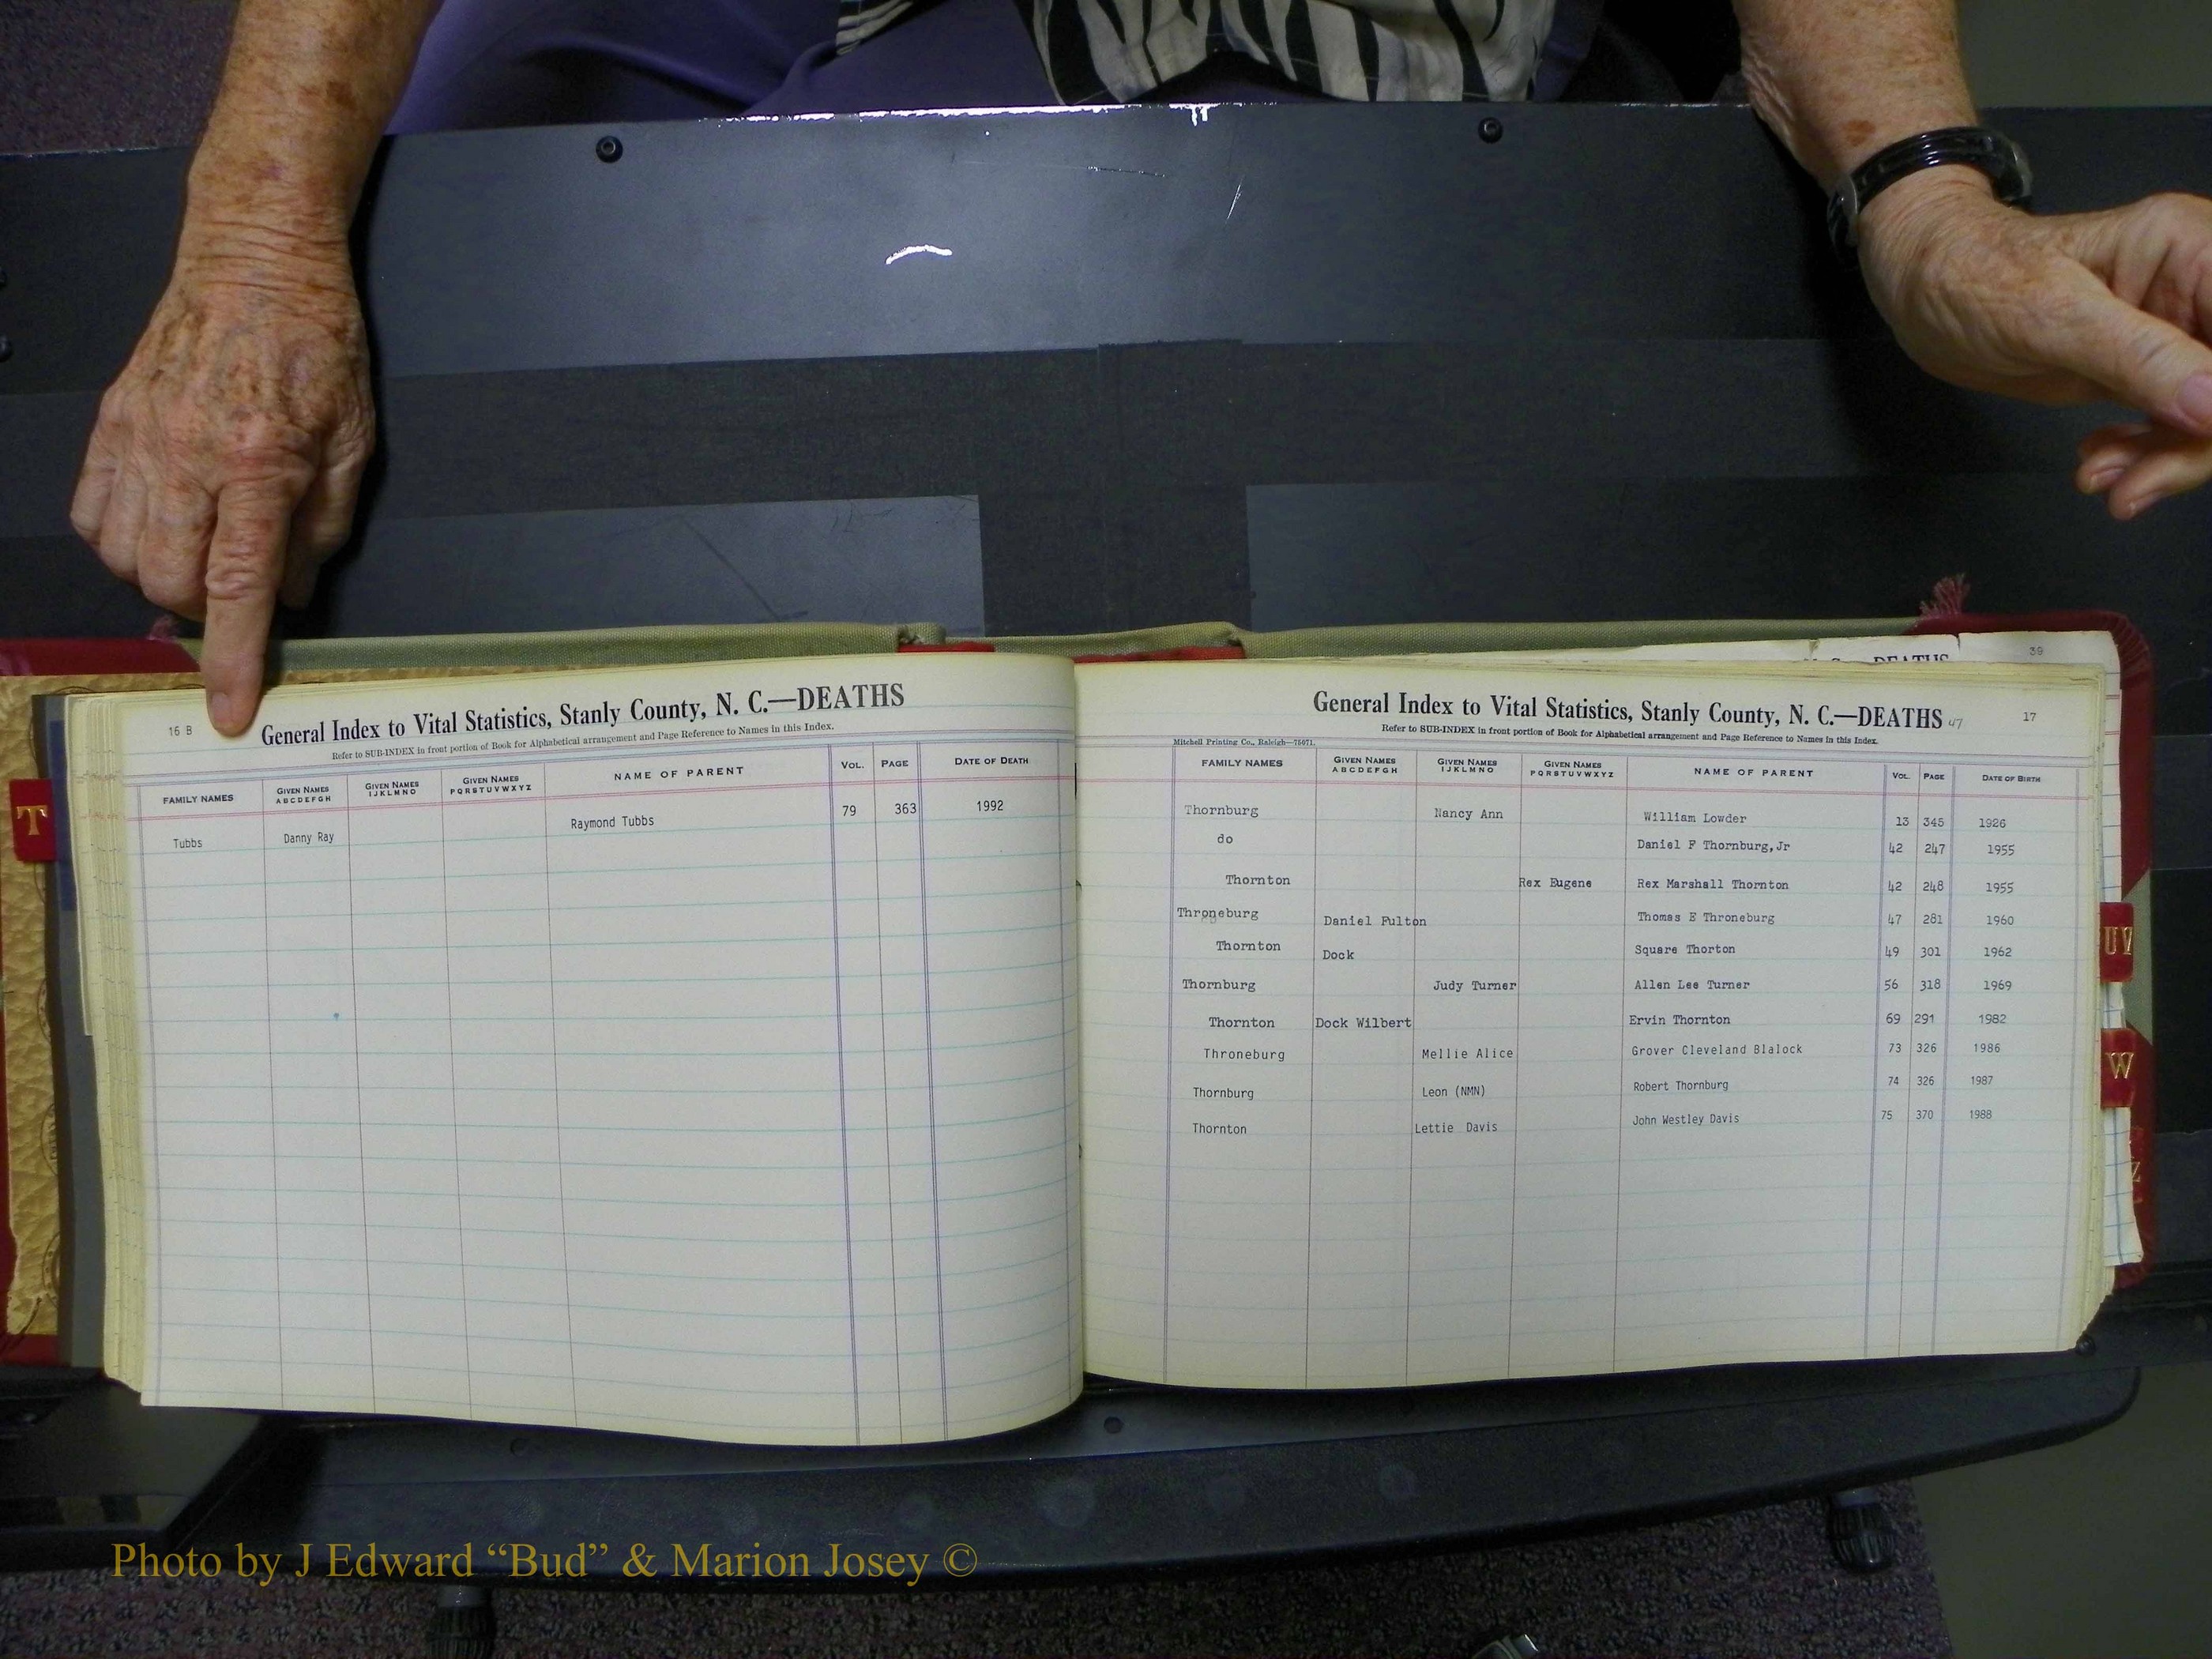 16 B
General Index to Vital Statistics, Stanly County, N. C.—DEATHS
Refer to SUB-INDEX in front portion of Book for Alphabetical arrangement and Page Reference to Names in this Index.
FAMILY NAMES GIVEN NAMES ABCDEFGH GIVEN NAMES IJKLMNO GIVEN NAMES PQRSTUVWXYZ NAME OF PARENT VOL. PAGE DATE OF DEATH
Tubbs Danny Ray Raymond Tubbs 79 363 1992
T
39
DEATHS
General Index to Vital Statistics, Stanly County, N. C.—DEATHS 47
17
Refer to SUB-INDEX in front portion of Book for Alphabetical arrangement and Page Reference to Names in this Index.
Mitchell Printing Co., Raleigh—75071.
FAMILY NAMES GIVEN NAMES ABCDEFGH GIVEN NAMES IJKLMNO GIVEN NAMES PQRSTUVWXYZ NAME OF PARENT VOL. PAGE DATE OF BIRTH
Thornburg Nancy Ann William Lowder 13 345 1926
do Daniel F Thornburg, Jr 42 247 1955
Thornton Rex Eugene Rex Marshall Thornton 42 248 1955
Throneburg Daniel Fulton Thomas E Throneburg 47 281 1960
Thornton Dock Square Thorton 49 301 1962
Thornburg Judy Turner Allen Lee Turner 56 318 1969
Thornton Dock Wilbert Ervin Thornton 69 291 1982
Throneburg Mellie Alice Grover Cleveland Blalock 73 326 1986
Thornburg Leon (NMN) Robert Thornburg 74 326 1987
Thornton Lettie Davis John Westley Davis 75 370 1988
UV
W
Z
Photo by J Edward “Bud” & Marion Josey ©